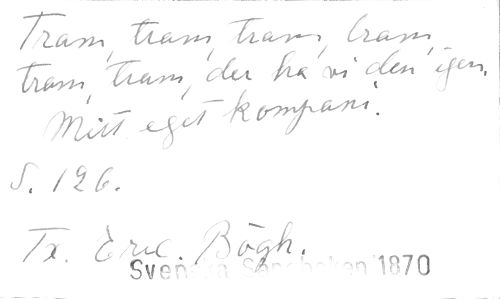 Tram, tram, tram, tram,
tram, tram, der ha vi den igen.
Mitt eget kompani.
S. 126.
Tx. Eric. Bögh.
Svenska Sångboken 1870